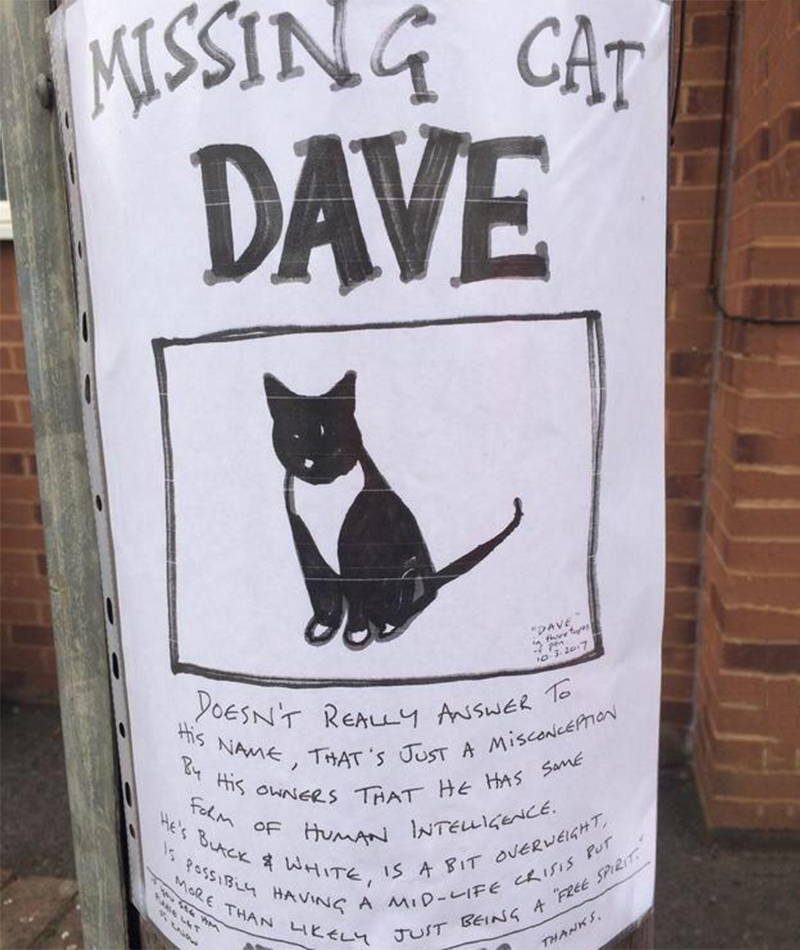 MISSING CAT
DAVE
"DAVE"
in three types
of pen
10.3.2017
DOESN'T REALLY ANSWER TO
HIS NAME, THAT'S JUST A MISCONCEPTION
BY HIS OWNERS THAT HE HAS SOME
FORM OF HUMAN INTELLIGENCE.
HE'S BLACK & WHITE, IS A BIT OVERWEIGHT,
IS POSSIBLY HAVING A MID-LIFE CRISIS BUT
MORE THAN LIKELY JUST BEING A "FREE SPIRIT."
IF YOU SEE HIM
PLEASE LET
US KNOW
THANKS.